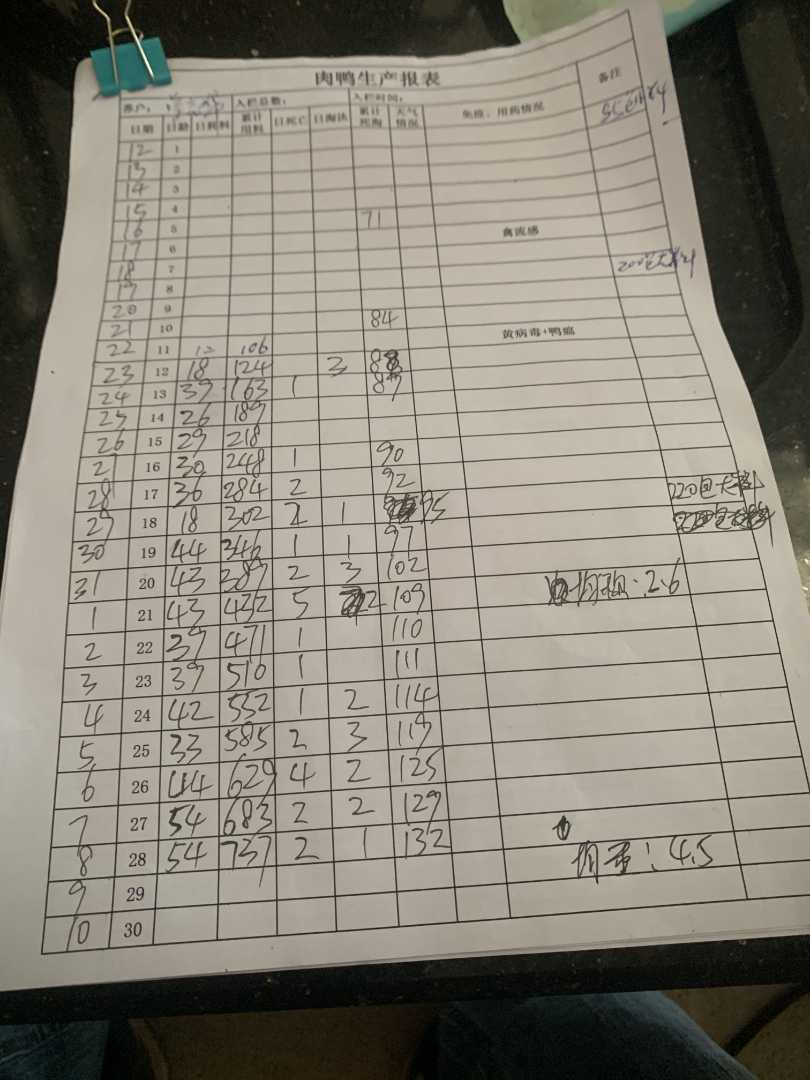 肉鸭生产报表
客户： 入栏总数： 入栏时间： 备注
日期 日龄 日耗料 累计用料 日死亡 日淘汰 累计死淘 天气情况 免疫、用药情况
12 1
13 2
14 3
15 4
16 5 71 禽流感
17 6
18 7
19 8
20 9
21 10 84
22 11 12 106 黄病毒+鸭瘟
23 12 18 124 3
24 13 39 163 1 87
25 14 26 189
26 15 29 218
27 16 30 248 1 90
28 17 36 284 2 92 220包大料
29 18 18 302 2 1 95
30 19 44 346 1 1 97
31 20 43 389 2 3 102
1 21 43 432 5 2 109 2.6
2 22 39 471 1 110
3 23 39 510 1 111
4 24 42 552 1 2 114
5 25 33 585 2 3 119
6 26 44 629 4 2 125
7 27 54 683 2 2 129
8 28 54 737 2 1 132 均重：4.5
9 29
10 30